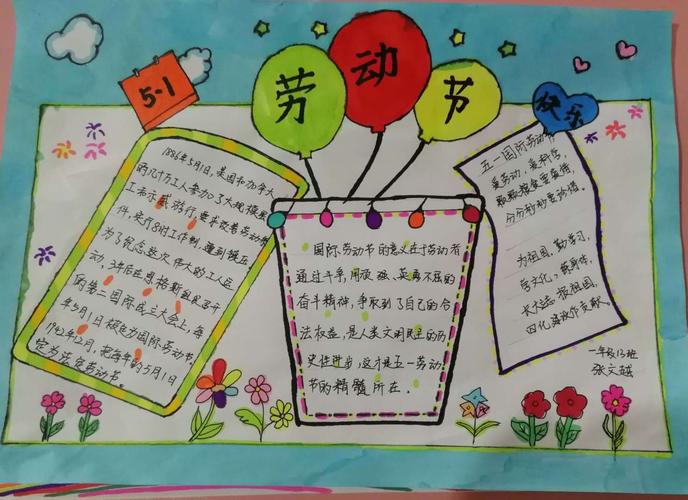 5·1
劳动节
快乐
1886年5月1日,美国和加拿大
的几十万工人参加了大规模罢
工和示威游行,要求改善劳动条
件,实行8时工作制,遭到镇压
为了纪念这次伟大的工人运
动,3年后在恩格斯组织召开
的第二国际成立大会上,每
年5月1日被定为国际劳动节
1942年12月,把每年的5月1日
定为法定劳动节。
国际劳动节的意义在于劳动者
通过斗争,用顽强、英勇不屈的
奋斗精神,争取到了自己的合
法权益,是人类文明民主的历
史性进步,这才是五一劳动
节的精髓所在。
五一国际劳动节
爱劳动,爱科学,
颗颗粮食要爱惜,
分分秒秒要珍惜。
为祖国,勤学习,
学文化,锻身体,
长大后报祖国,
四化建设作贡献。
一年级13班
张文